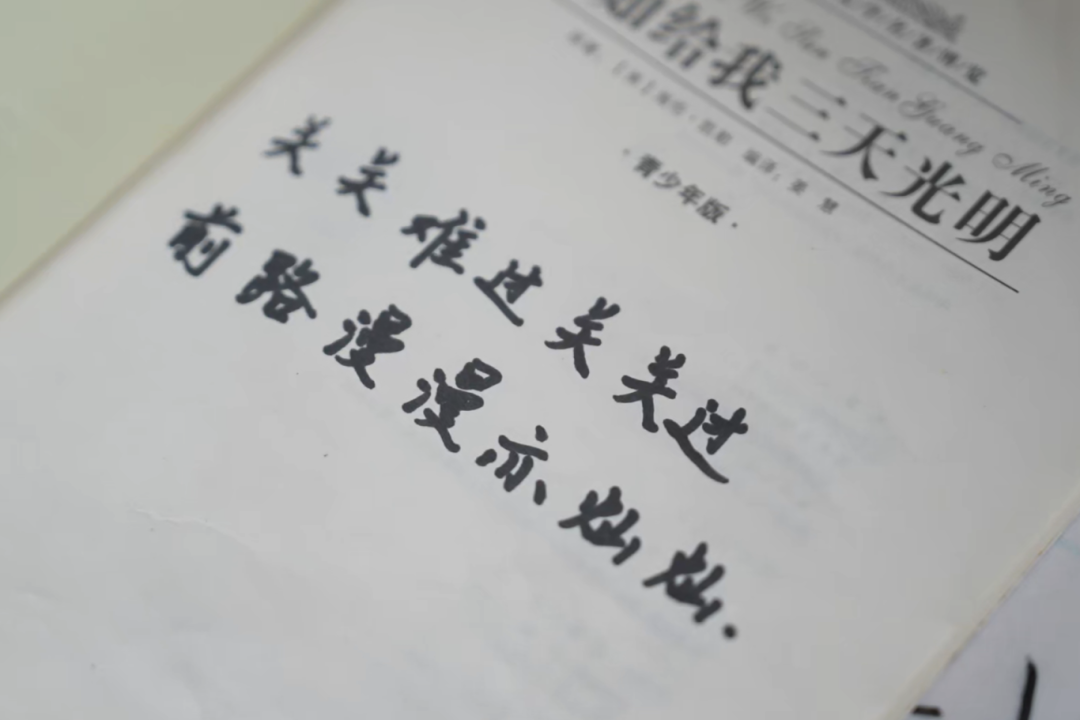 给我三天光明
San Tian Guang Ming
·青少年版·
关关难过关关过
前路漫漫亦灿灿.